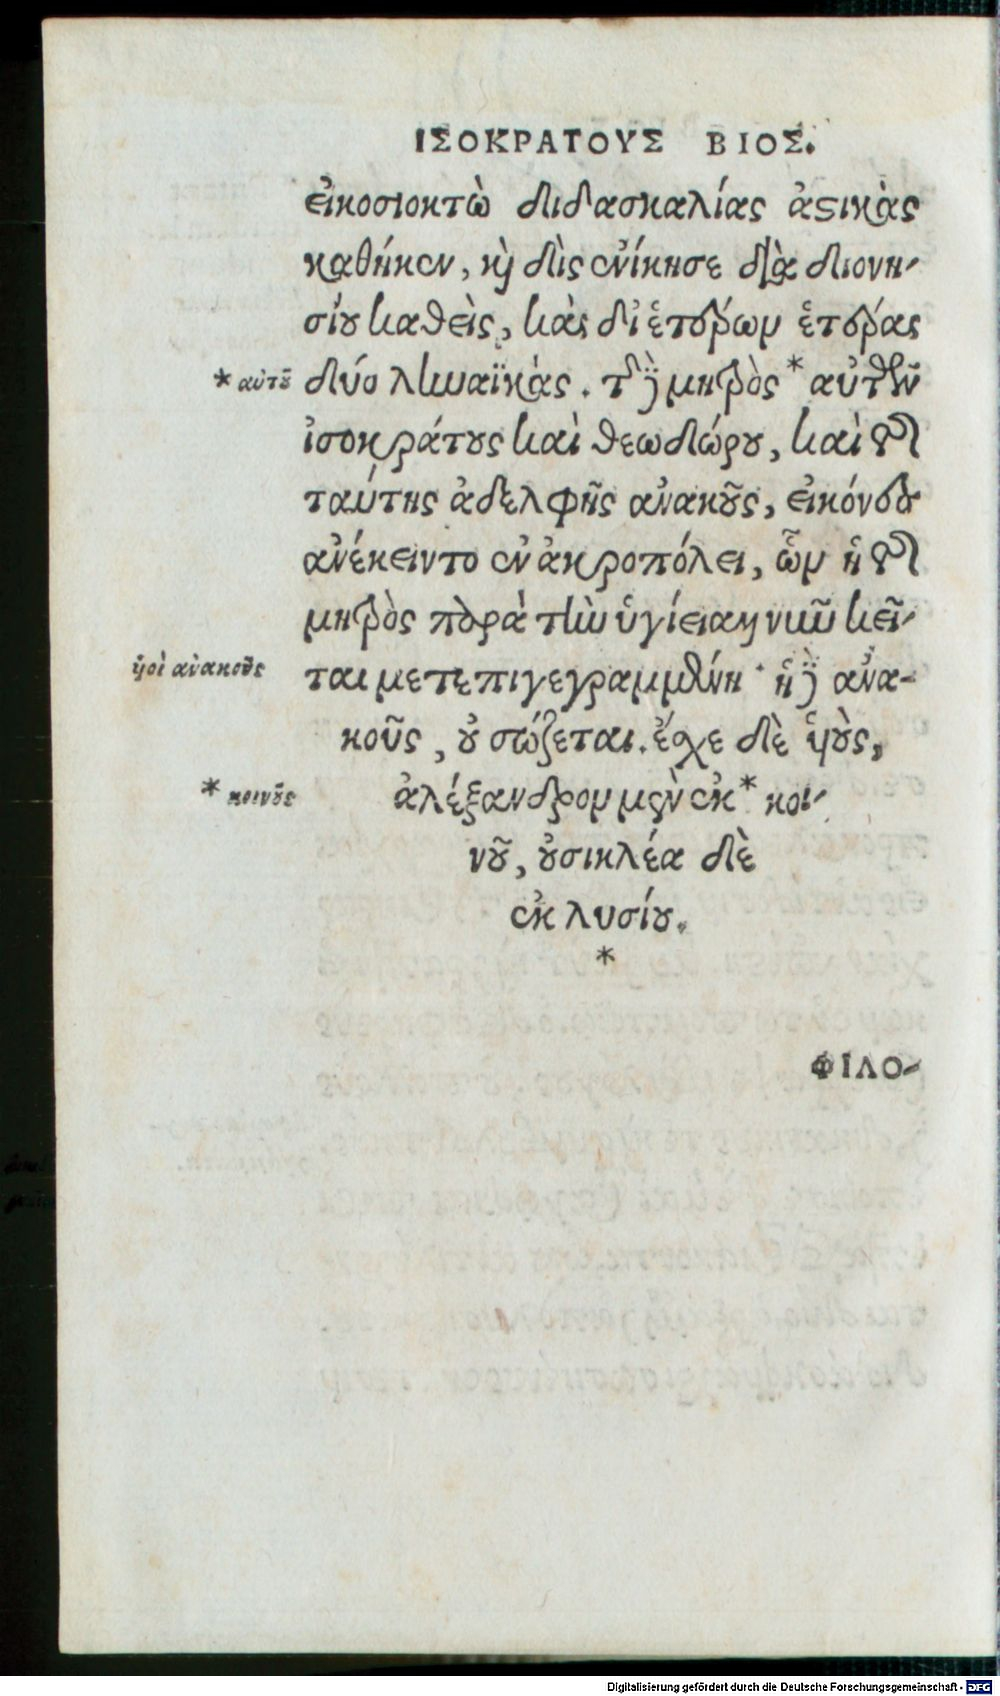 ΙΣΟΚΡΑΤΟΥΣ ΒΙΟΣ.
εἰκοσιοκτὼ διδασκαλίας ἀστικὰς
καθῆκεν, καὶ δὶς ἐνίκησε διὰ διονυ-
σίου καθεὶς, καὶ δι' ἑτέρων ἑτέρας
* αὐτοῦ
δύο ληναϊκὰς. τῆς δὲ μητρὸς * αὐτῶν
ἰσοκράτους καὶ θεωδώρου, καὶ τῆς
ταύτης ἀδελφῆς ἀνακοῦς, εἰκόνες
ἀνέκειντο ἐν ἀκροπόλει, ὧν ἡ τῆς
μητρὸς παρὰ τὴν ὑγίειαν νῦν κεῖ-
ὑοὶ ἀνακοῦς
ται μετεπιγεγραμμένη · ἡ δὲ ἀνα-
κοῦς, οὐ σώζεται. ἔσχε δὲ ὑοὺς,
* κοινοῦς
ἀλέξανδρον μὲν ἐκ * κοι-
νοῦ, οὐσικλέα δὲ
ἐκ λυσίου.
*
ΦΙΛΟ-
Digitalisierung gefördert durch die Deutsche Forschungsgemeinschaft - DFG